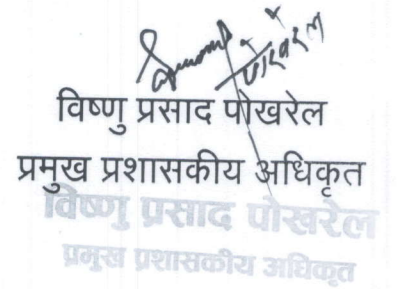 पोखरेल
विष्णु प्रसाद पोखरेल
प्रमुख प्रशासकीय अधिकृत
विष्णु प्रसाद पोखरेल
प्रमुख प्रशासकीय अधिकृत